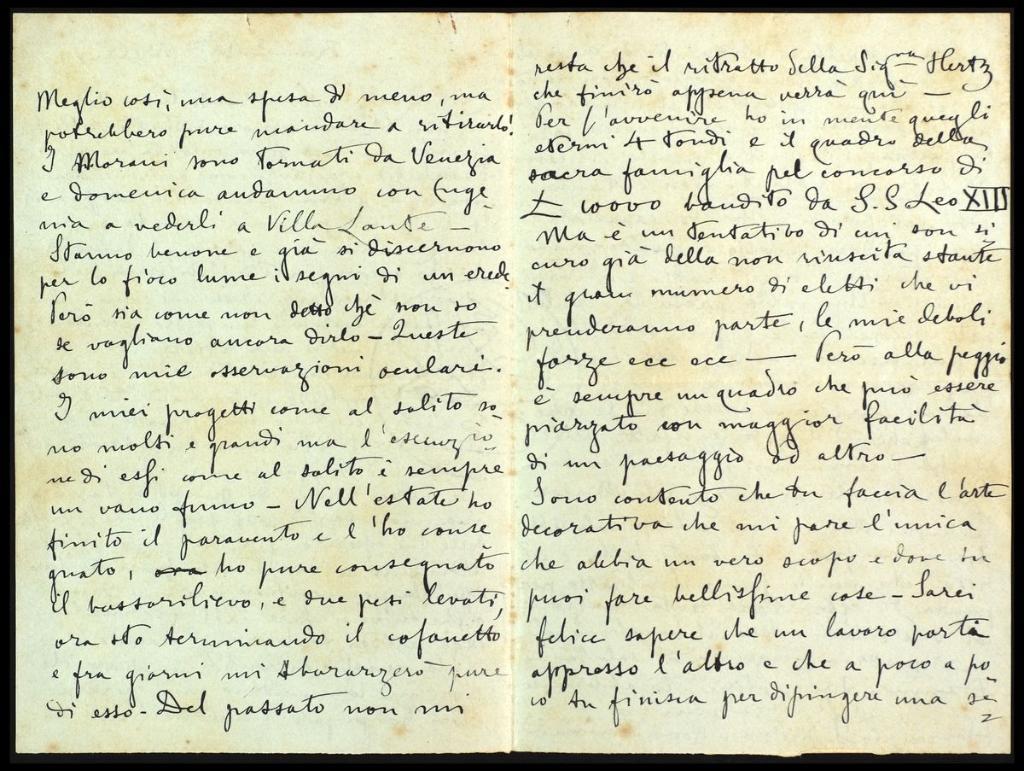 Meglio così, una spesa di meno, ma
potrebbero pure mandare a ritirarlo!
I Morani sono tornati da Venezia
e domenica andammo con Euge-
nia a vederli a Villa Lante -
Stanno benone e già si discernono
per lo fioco lume i segni di un erede
Però sia come non detto chè non so
se vogliano ancora dirlo - Queste
sono mie osservazioni oculari.
I miei progetti come al solito so
no molti e grandi ma l'esecuzio
ne di essi come al solito è sempre
un vano fumo - Nell'estate ho
finito il paravento e l'ho conse
gnato, ora ho pure consegnato
il bassorilievo, e due pesi levati,
ora sto terminando il cofanetto
e fra giorni mi sbarazzerò pure
di esso - Del passato non mi
resta che il ritratto della Sig.ra Hertz
che finirò appena verrà quì -
Per l'avvenire ho in mente quegli
eterni 4 tondi e il quadro della
sacra famiglia pel concorso di
£ 10000 bandito da S.S Leo XIII
Ma è un tentativo di cui son si
curo già della non riuscita stante
il gran numero di eletti che vi
prenderanno parte, le mie deboli
forze ecc ecc - Però alla peggio
è sempre un quadro che può essere
piazzato con maggior facilità
di un paesaggio od altro -
Sono contento che tu faccia l'arte
decorativa che mi pare l'unica
che abbia un vero scopo e dove tu
puoi fare bellissime cose - Sarei
felice sapere che un lavoro porta
appresso l'altro e che a poco a po
co tu finisca per dipingere una se=